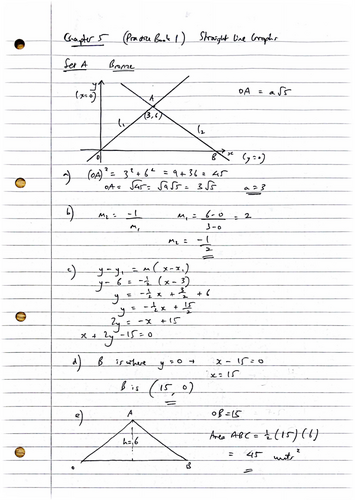 Chapter 5 (Practice Book 1) Straight Line Graphs
Set A Bronze
y
(x=0)
A
OA = a√5
(3,6)
l₁
l₂
O
B
x
(y=0)
a) (OA)² = 3² + 6² = 9 + 36 = 45
OA = √45 = √9√5 = 3√5 a = 3
b) m₂ = -1/m₁ m₁ = 6-0/3-0 = 2
m₂ = -1/2
c) y - y₁ = m(x - x₁)
y - 6 = -½(x - 3)
y = -½x + 3/2 + 6
y = -½x + 15/2
2y = -x + 15
x + 2y - 15 = 0
d) B is where y = 0 → x - 15 = 0
x = 15
B is (15, 0)
e)
A
OB = 15
h = 6
Area ABC = ½(15)(6)
= 45 units²
O
B